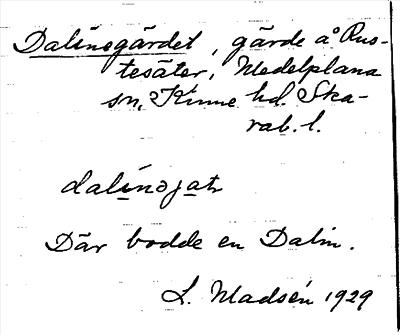 Dalinsgärdet, gärde å Rus-
tesäter, Medelplana
sn, Kinne hd. Ska-
rab. l.
dalinsjatr
Där bodde en Dalin.
L. Madsén 1929